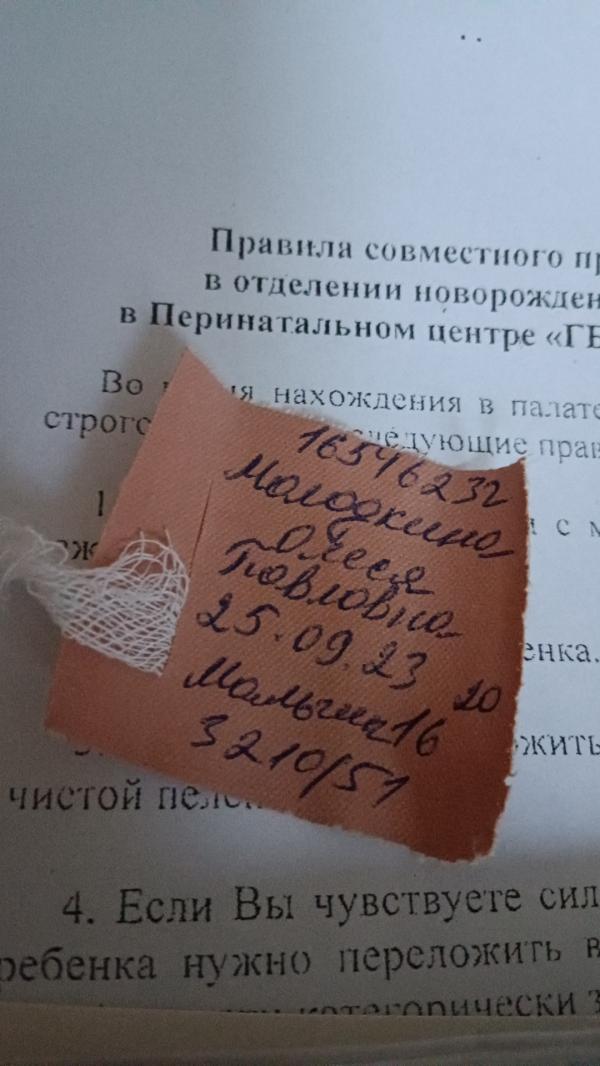 Правила совместного
в отделении
в Перинатальном центре
Во нахождения в палате
следующие
16546232
Молодкина
Олеся
Павловна
25.09.23
Мальчик 16 20
3210/51
с
чистой
4. Если Вы чувствуете
ребенка нужно переложить в
категорически